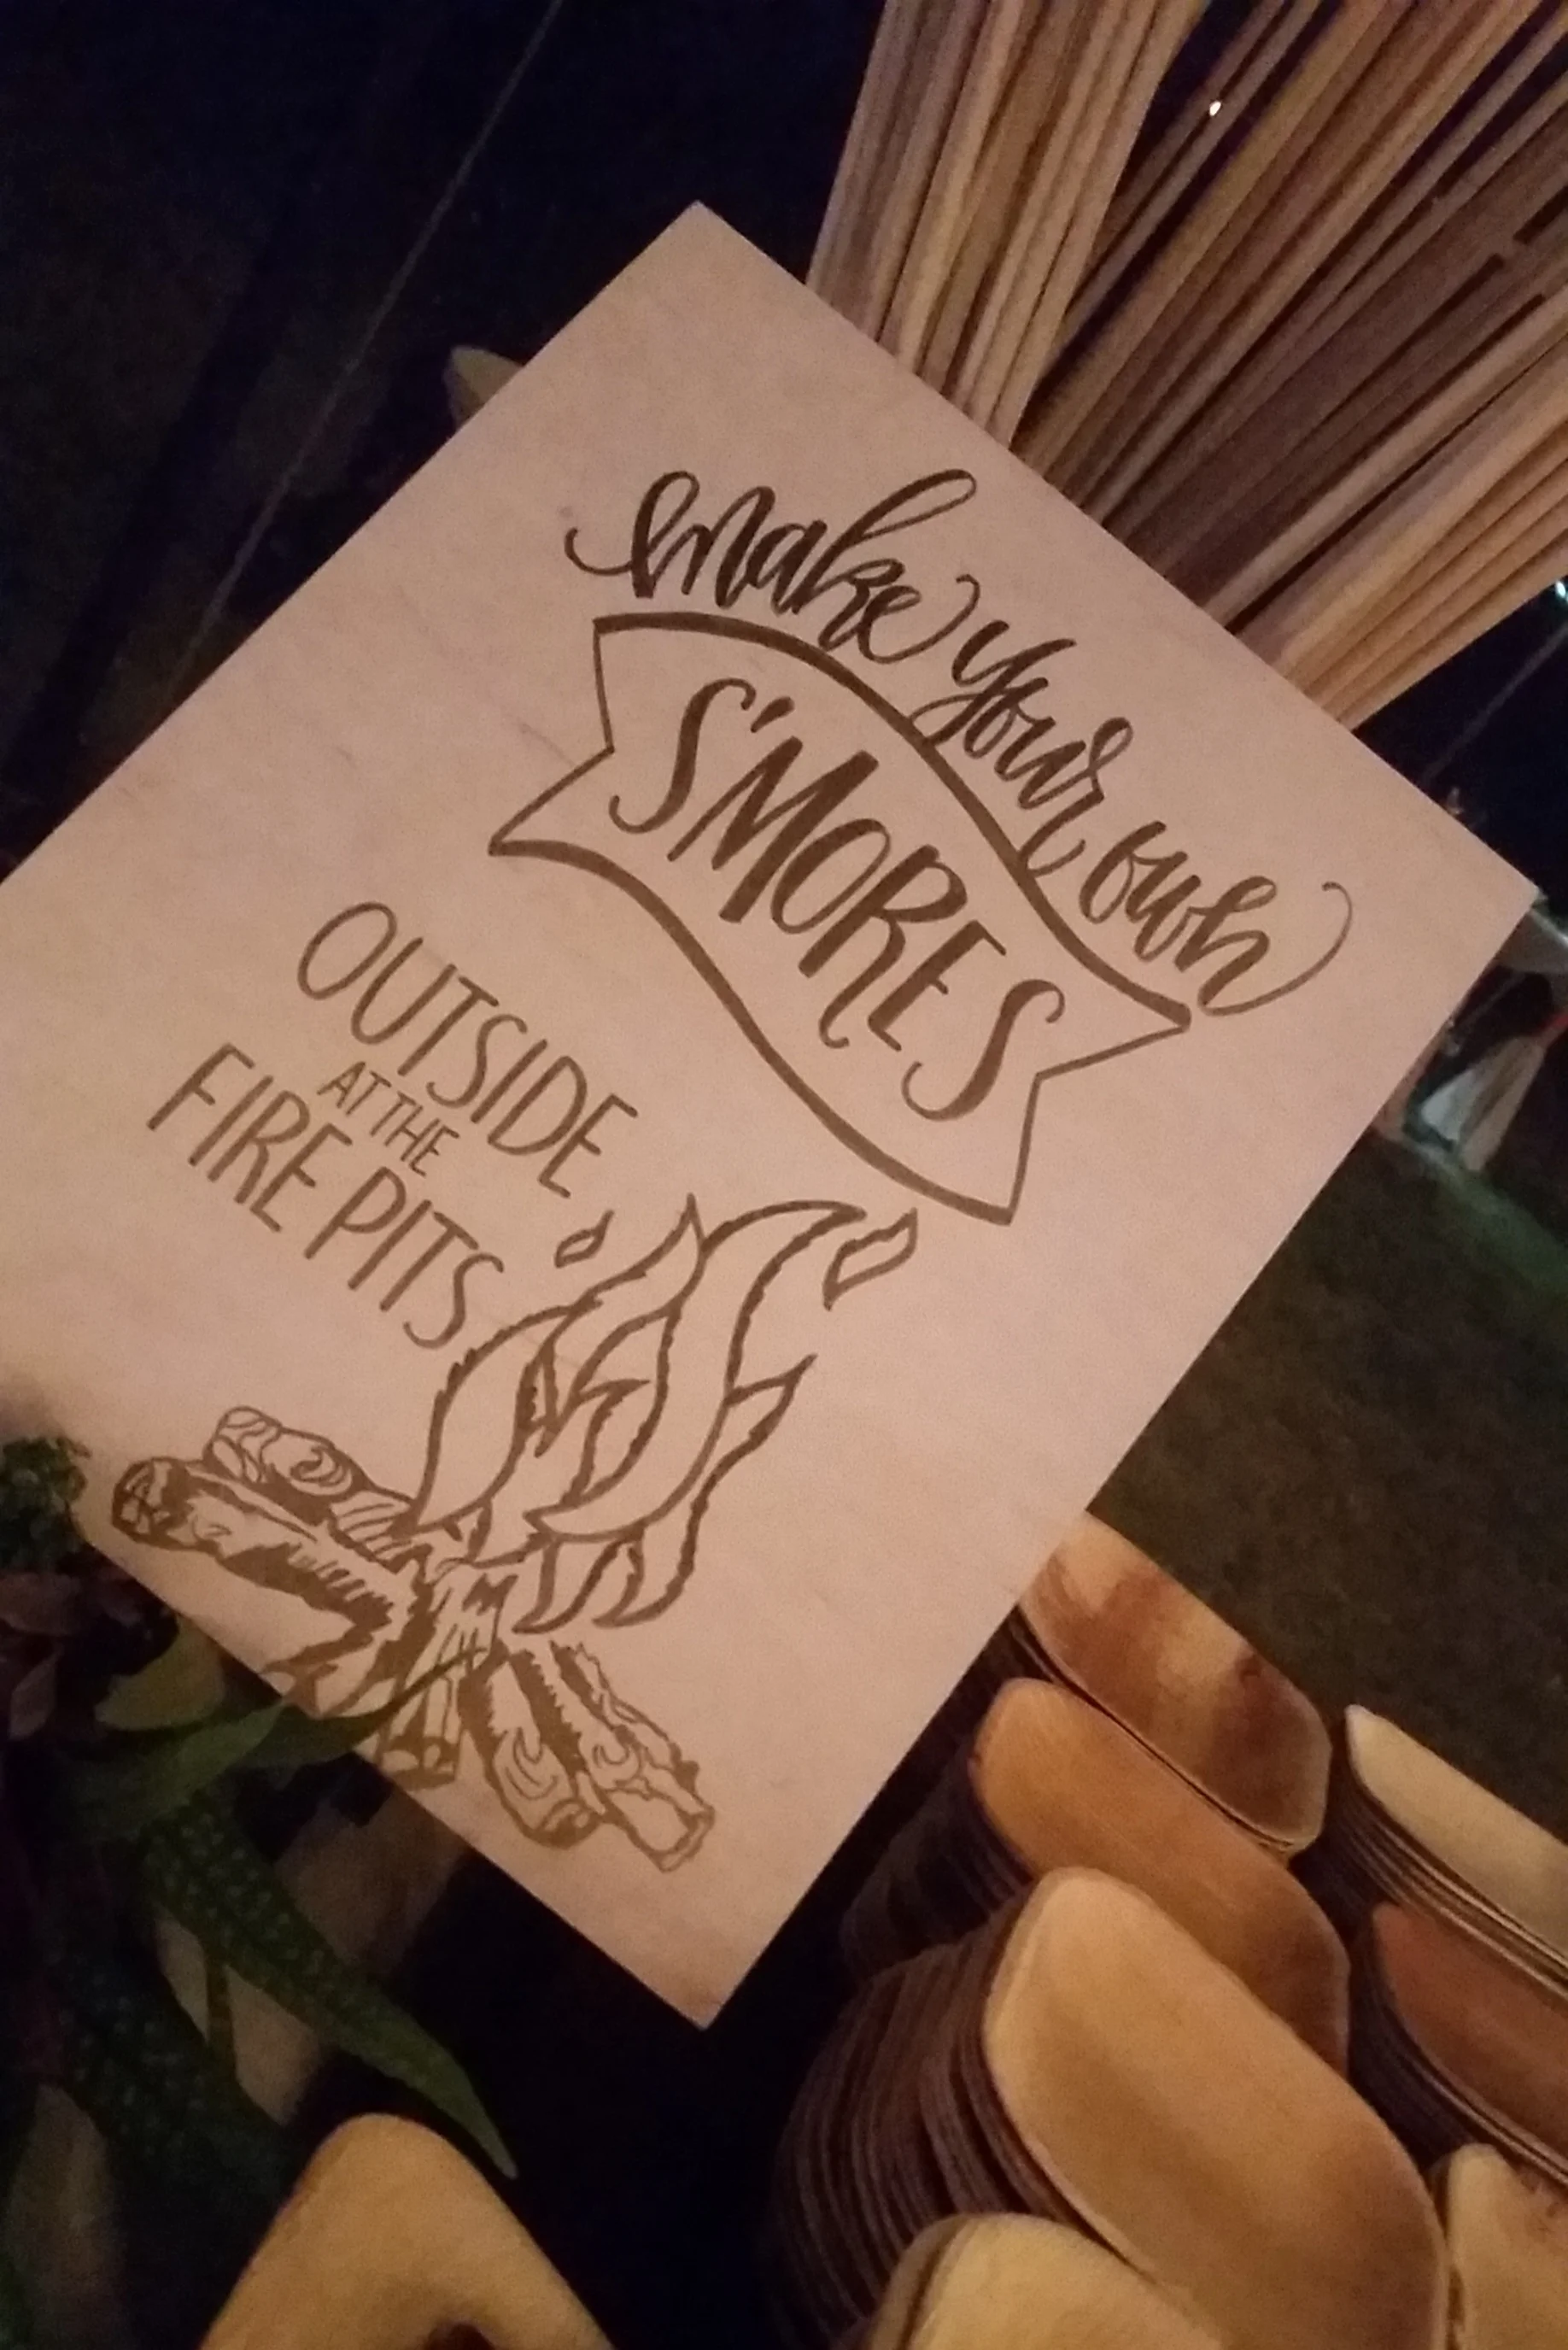 make your own
S'MORES
OUTSIDE
AT THE
FIRE PITS